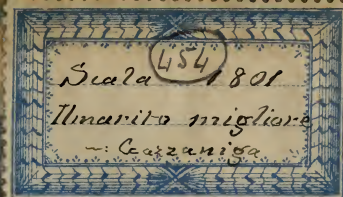 454
Scala 1801
Il marito migliore
~: Gazzaniga